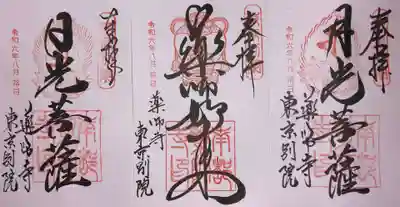 奉拝
月光菩薩
令和六年八月
薬師寺
東京別院
奉拝
薬師如来
令和六年八月
薬師寺
東京別院
奉拝
日光菩薩
令和六年八月
薬師寺
東京別院